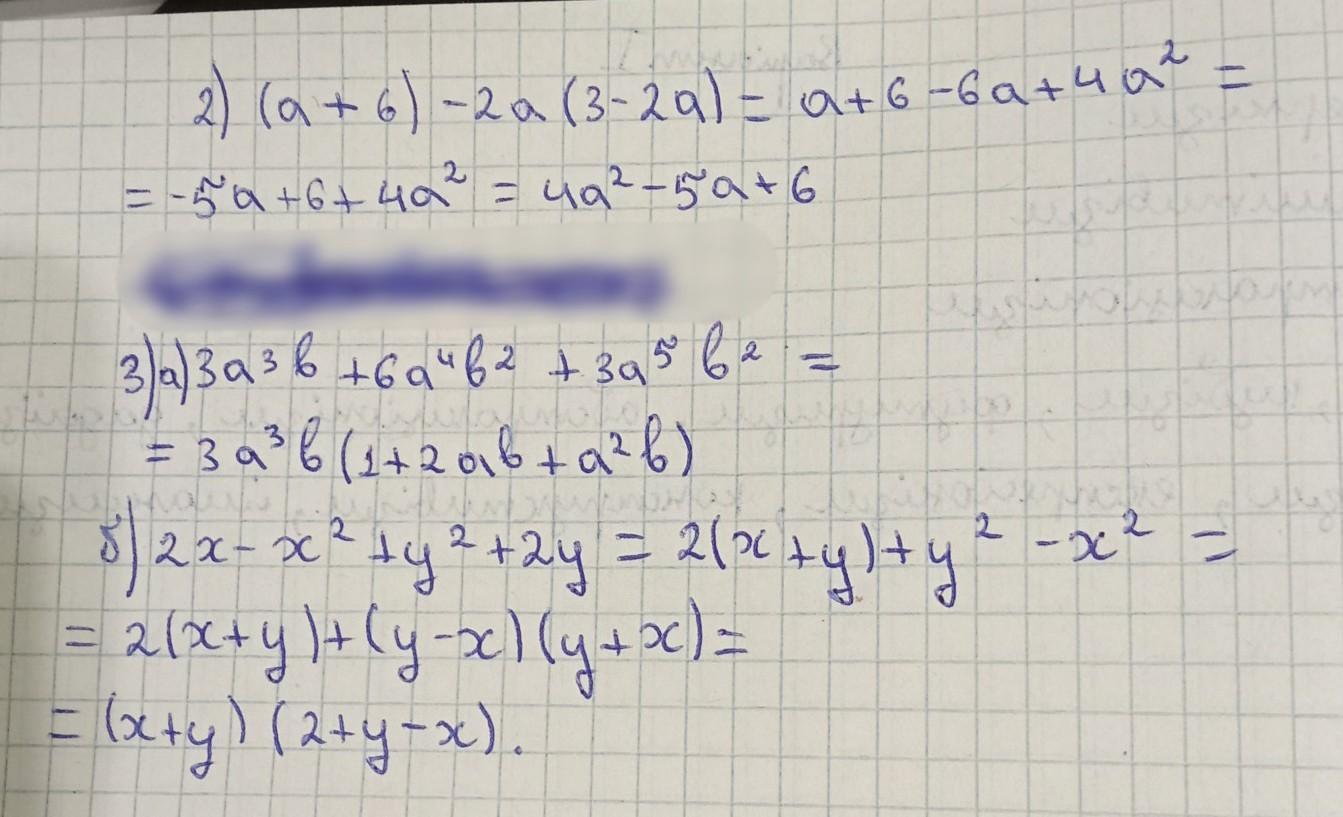 2) (a + 6) - 2a (3 - 2a) = a + 6 - 6a + 4a² =
= -5a + 6 + 4a² = 4a² - 5a + 6
3) а) 3a³b + 6a⁴b² + 3a⁵b² =
= 3a³b (1 + 2ab + a²b)
б) 2x - x² + y² + 2y = 2(x + y) + y² - x² =
= 2(x + y) + (y - x)(y + x) =
= (x + y) (2 + y - x).